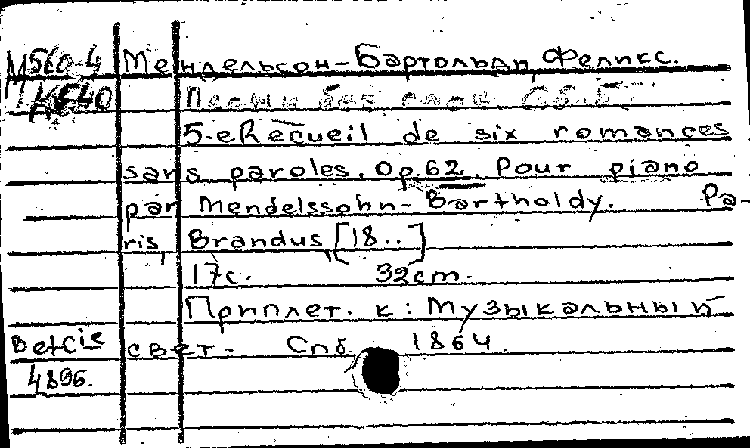 М560-4 Мендельсон-Бартольди, Феликс.
Песни без слов. Сб. 5
5-e Recueil de six romances
sans paroles. Op. 62. Pour piano
par Mendelssohn-Bartholdy. Pa-
ris, Brandus, [18..]
17с. 32cm.
Приплет. к: Музыкальный
свет. Спб 1864.
4896.